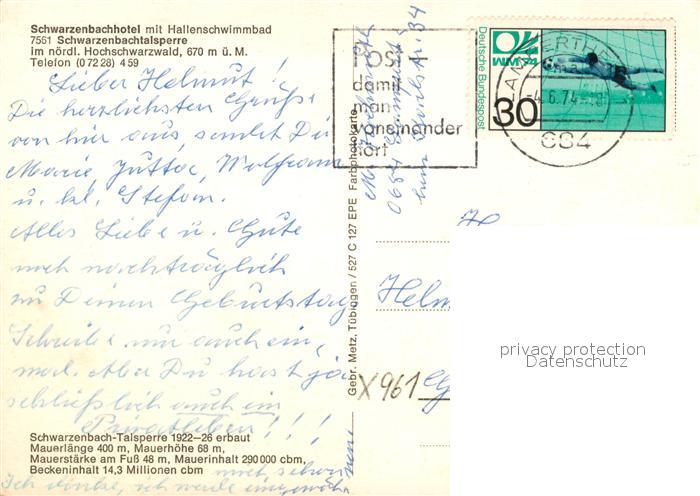 Schwarzenbachhotel mit Hallenschwimmbad
7561 Schwarzenbachtalsperre
im nördl. Hochschwarzwald, 670 m ü. M.
Telefon (0 72 28) 4 59
Lieber Helmut!
Die herzlichsten Grüße
von hier aus, sendet Dir
Marie, Jutta, Wolfram
u. kl. Stefan.
Alles Liebe u. Gute
noch nachträglich
zu Deinem Geburtstag
Schreibe mir auch ein-
mal. Aber Du hast ja
schließlich auch ein
Privatleben!!!
Schwarzenbach-Talsperre 1922–26 erbaut
Mauerlänge 400 m, Mauerhöhe 68 m,
Mauerstärke am Fuß 48 m, Mauerinhalt 290 000 cbm,
Beckeninhalt 14,3 Millionen cbm
Ich denke, ich werde
Gebr. Metz, Tübingen / 527 C 127 EPE Farbphotokarte
POST
damit
man
voneinander
hört
Deutsche Bundespost
WM 74
30
-4.6.74
684
Helm
X961
privacy protection
Datenschutz